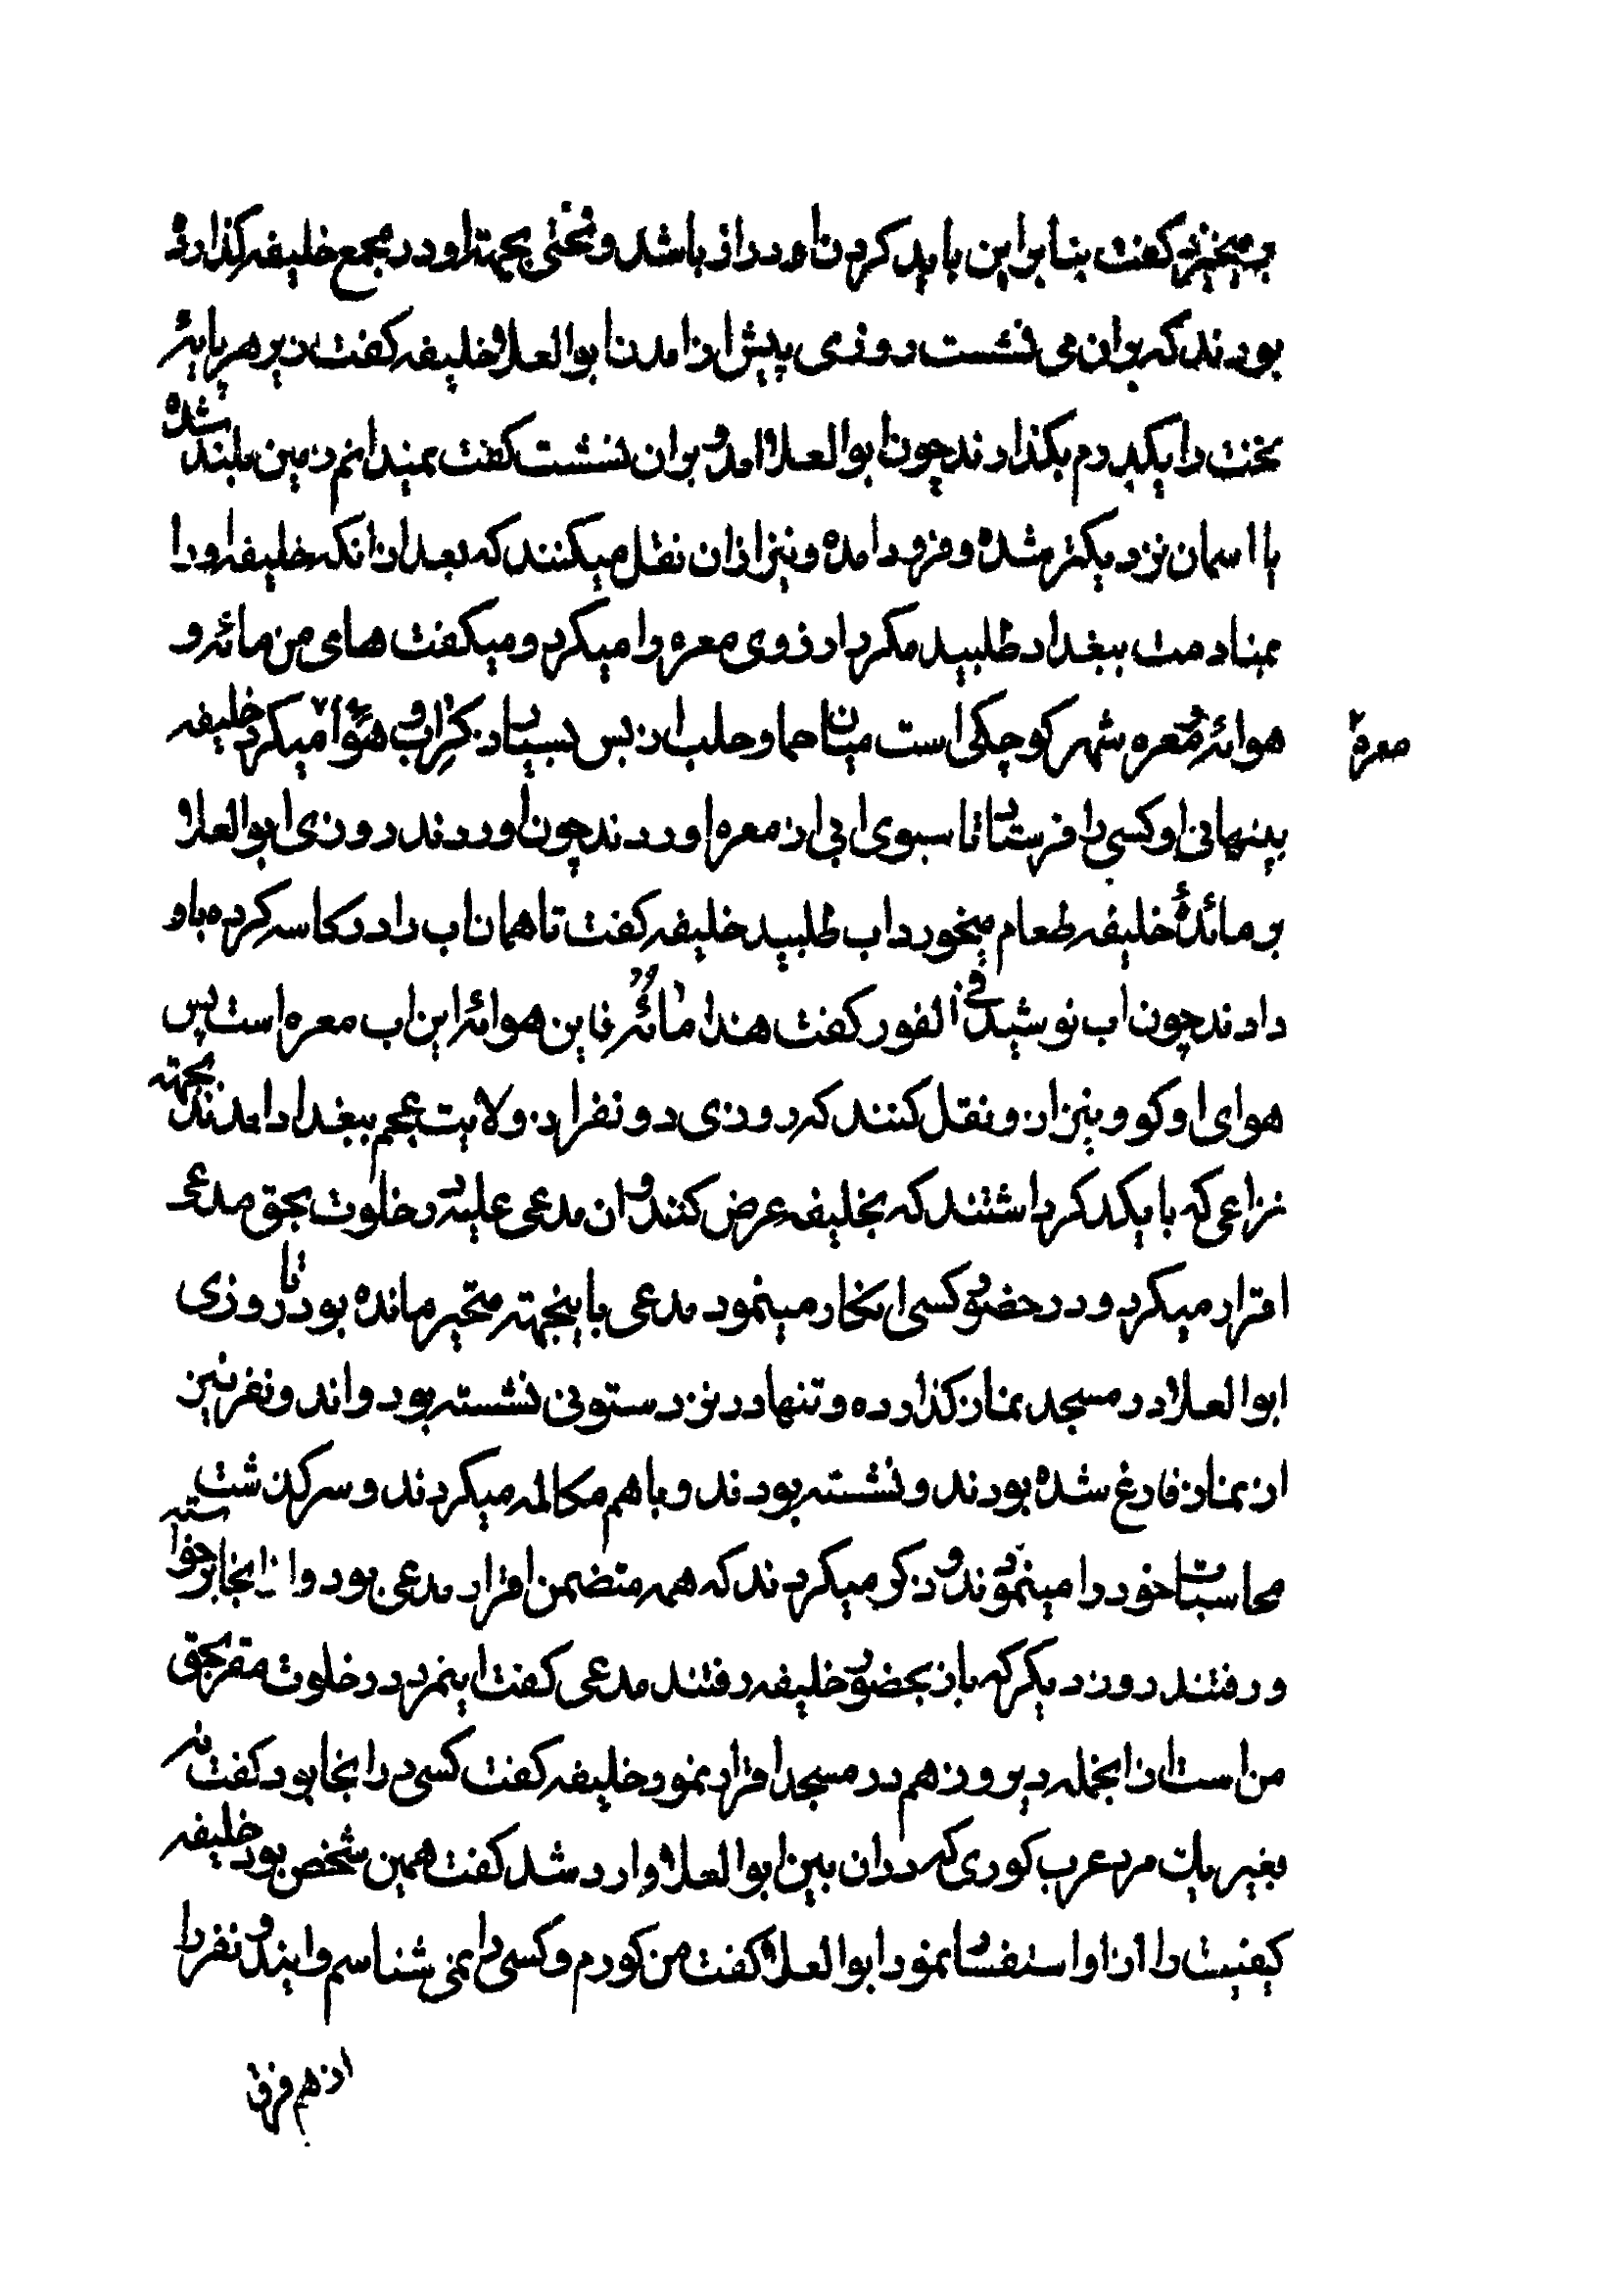 برمیخیزد کفت بنابراین باید کردن او دراز باشد و تختی بجهة او در مجمع خلیفه کذارده
بودند که بران می نشست روزی پیش از امدن ابو العلاء خلیفه کفت زیر هر پایۀ
تخت را یکدرم بکذارند چون ابو العلاء امد و بران نشست کفت نمیدانم زمین بلند شده
یا اسمان نزدیکتر شده و فرود امده و نیز ازان نقل میکنند که بعد ازانکه خلیفه او را
بمنادمت ببغداد طلبید مکرر ارزوی معره را میکرد و میکفت های من مائه و
هوائه و معره شهر کوچکی است میان حما و حلب از بس بسیار ذکر اب و هوا میکرد خلیفه
معره
بپنهانی او کسی را فرستاد تا سبوی ابی از معره اوردند چون اوردند روزی ابو العلاء
بر مائدۀ خلیفه طعام میخورد اب طلبید خلیفه کفت تا همان اب را در کاسه کرده باو
دادند چون اب نوشید فی الفور کفت هذا مائه فاین هوائه این اب معره است پس
هوای او کو و نیز از و نقل کنند که روزی دو نفر از ولایت عجم ببغداد امدند بجهته
نزاعی که با یکدکر داشتند که بخلیفه عرض کنند و ان مدعی علیه در خلوت بحق مدعی
اقرار میکرد و در حضور کسی انکار مینمود مدعی باینجهته متحیر مانده بود تا روزی
ابو العلاء در مسجد نماز کذارده و تنها در نزد ستونی نشسته بود و اندو نفر نیز
از نماز فارغ شده بودند و نشسته بودند و باهم مکالمه میکردند و سرکذشت
محاسبات خود را مینمودند و ذکر میکردند که همه متضمن اقرار مدعی بود و از انجا برخواسته
و رفتند روز دیکر که باز بحضور خلیفه رفتند مدعی کفت اینمرد در خلوت مقر بحق
من است از انجمله دیروز هم در مسجد اقرار نمود خلیفه کفت کسی در انجا بود کفت نه
بغیر یک مرد عرب کوری که دران بین ابو العلاء وارد شد کفت همین شخص بود خلیفه
کیفیت را از او استفسار نمود ابو العلاء کفت من کورم و کسی را نمی شناسم و ایندو نفر را
از هم فرق